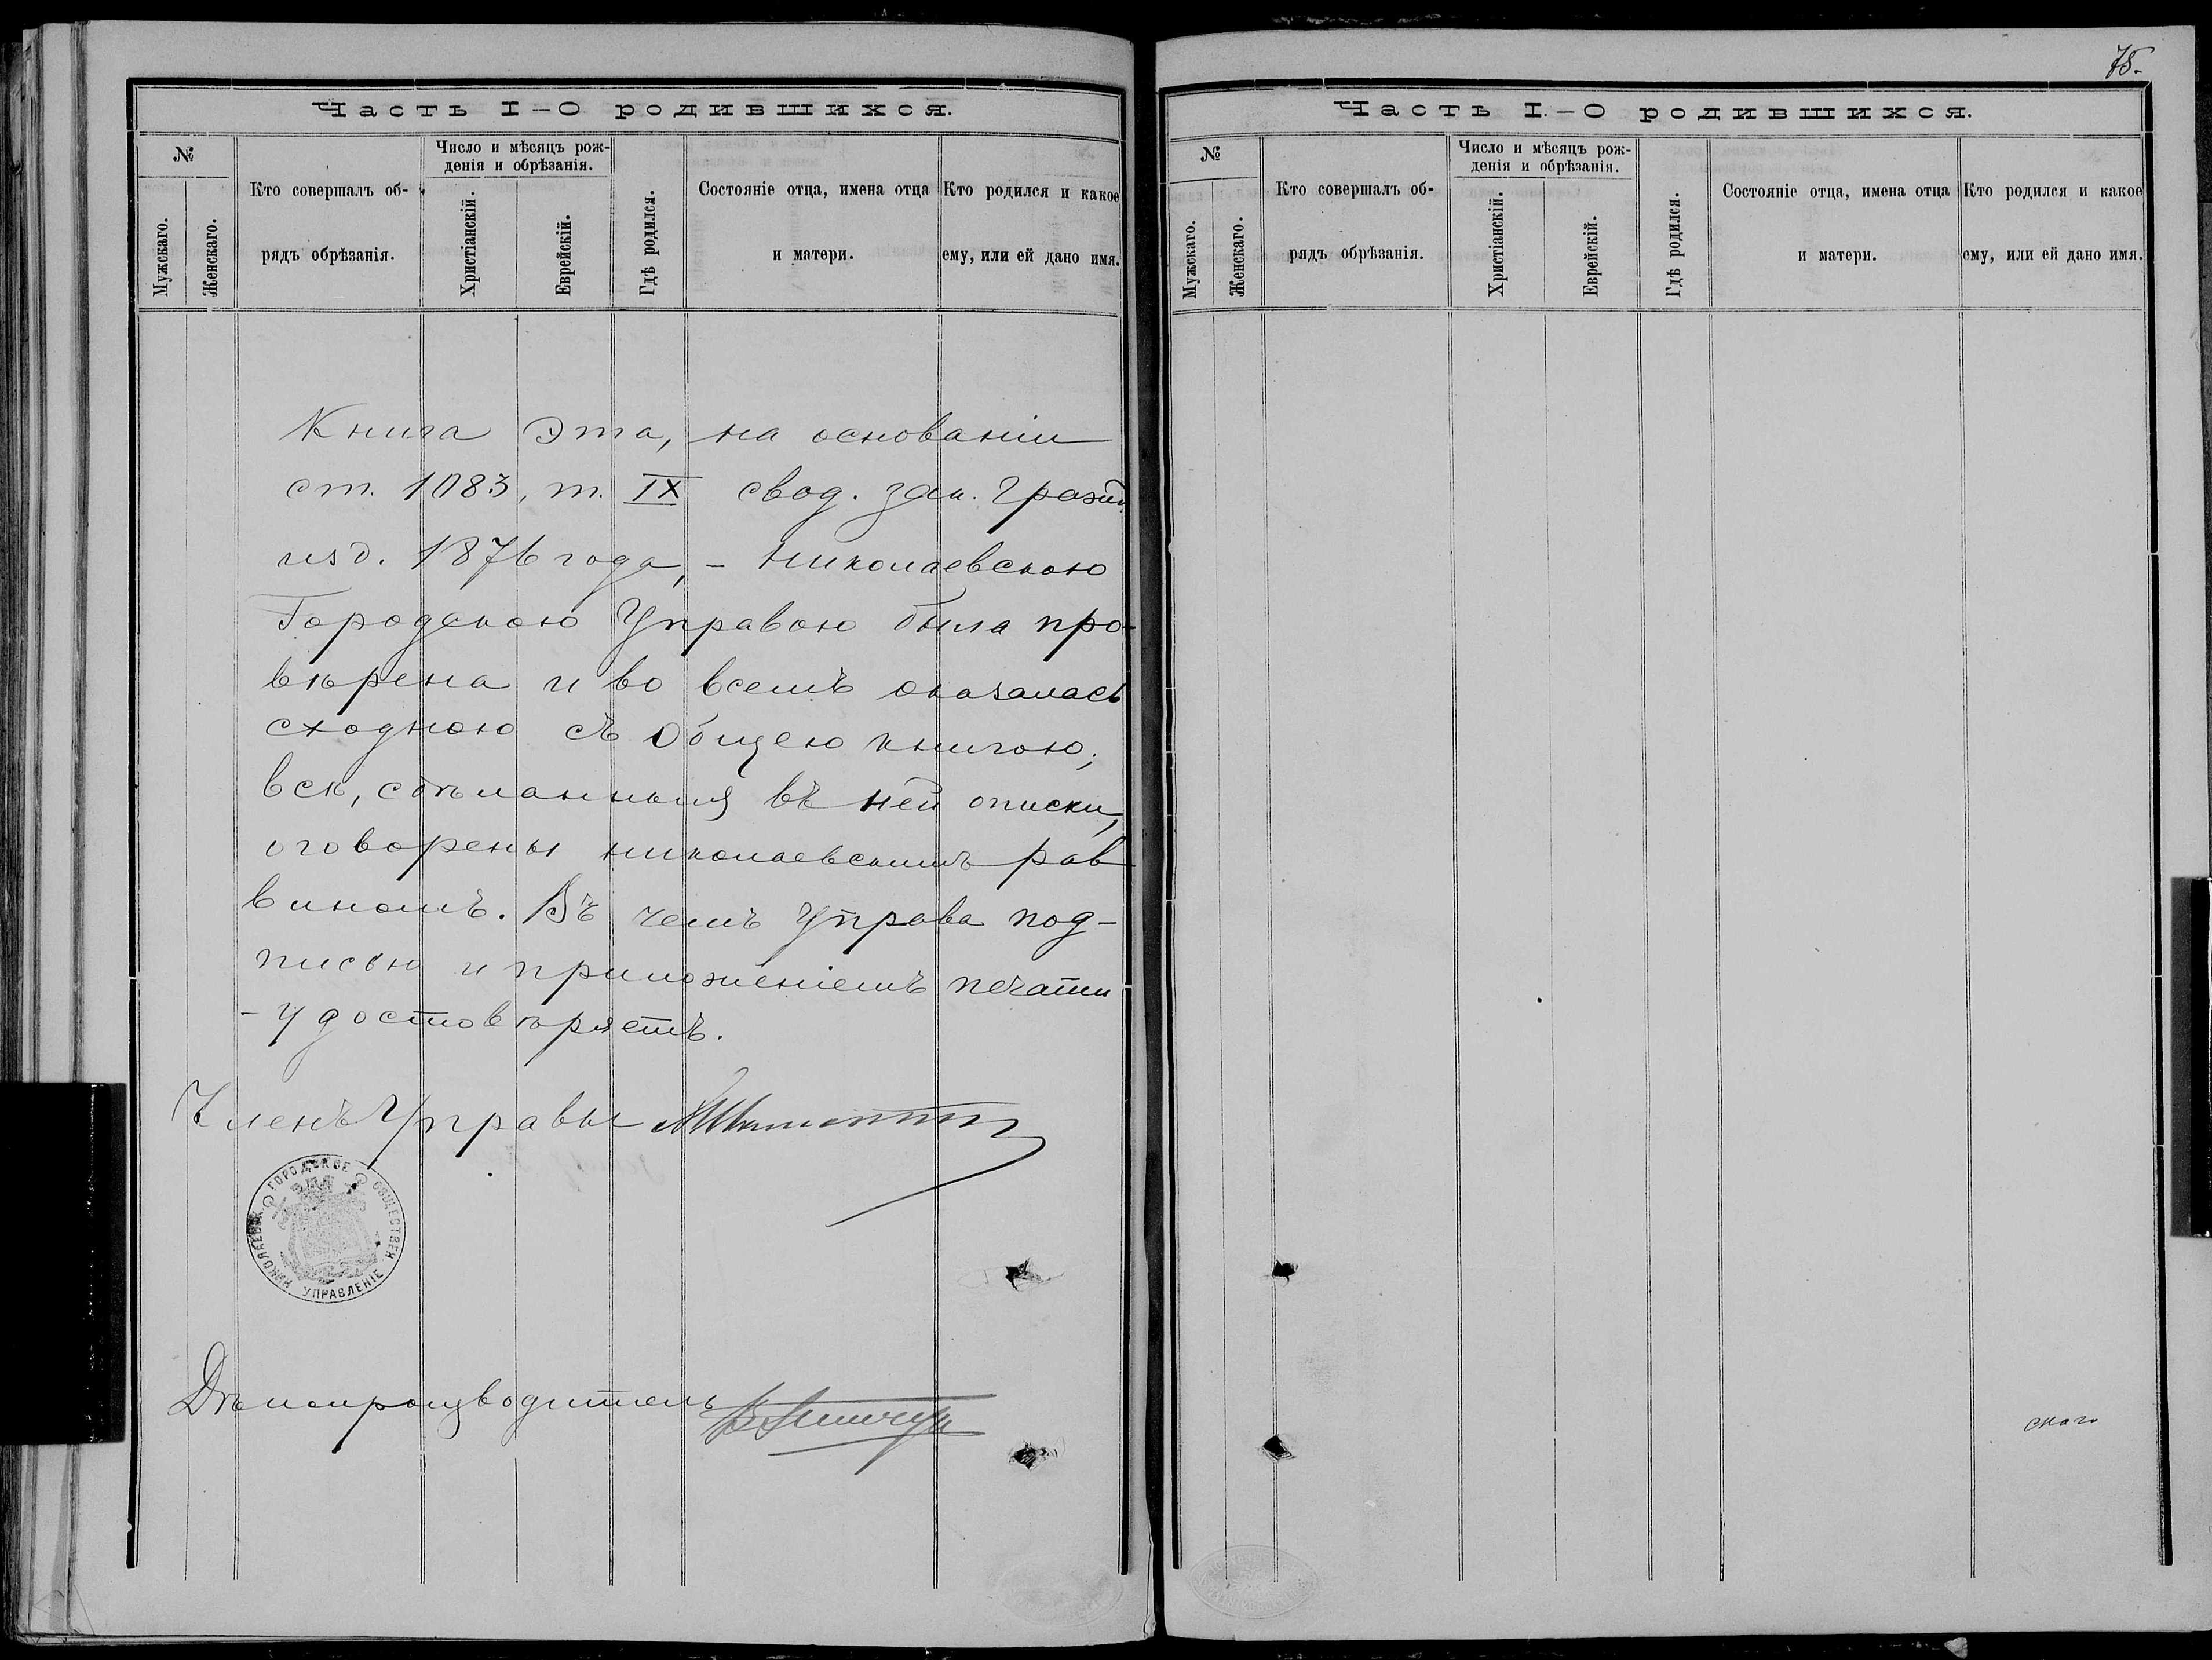 Часть I–О родившихся.
№
Мужскаго.
Женскаго.
Кто совершалъ об-
рядъ обрѣзанія.
Число и мѣсяцъ рож-
денія и обрѣзанія.
Христіанскій.
Еврейскій.
Гдѣ родился.
Состояніе отца, имена отца
и матери.
Кто родился и какое
ему, или ей дано имя.
Книга эта, на основаніи
ст. 1083, т. IX свод. зак. Гражд.
изд. 1876 года, – Николаевскою
Городскою Управою была про-
вѣрена и во всемъ оказалась
сходною съ Общею книгою;
всѣ, сдѣланныя въ ней описки,
оговорены николаевскимъ рав
виномъ. Въ чемъ Управа под-
писью и приложеніемъ печати
- удостовѣряетъ.
Членъ Управы
ГОРОДСКОЕ ОБЩЕСТВЕН УПРАВЛЕНІЕ
Дѣлопроизводитель
75.
Часть I.–О родившихся.
№
Мужскаго.
Женскаго.
Кто совершалъ об-
рядъ обрѣзанія.
Число и мѣсяцъ рож-
денія и обрѣзанія.
Христіанскій.
Еврейскій.
Гдѣ родился.
Состояніе отца, имена отца
и матери.
Кто родился и какое
ему, или ей дано имя.
скаго